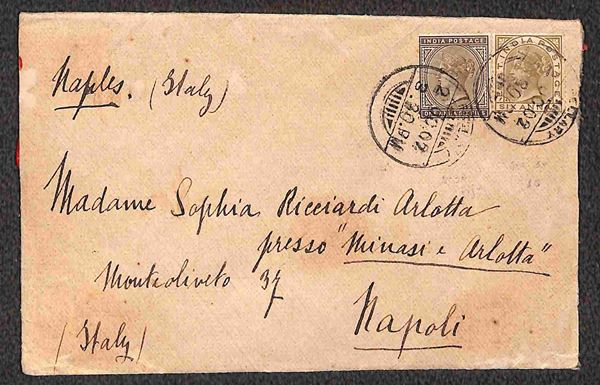 Naples. (Italy)
INDIA POSTAGE
INDIA POSTAGE
SIX ANN
3.20.PM
Madame Sophia Ricciardi Arlotta
presso "Minasi e Arlotta"
Monteoliveto 37
Napoli
(Italy)